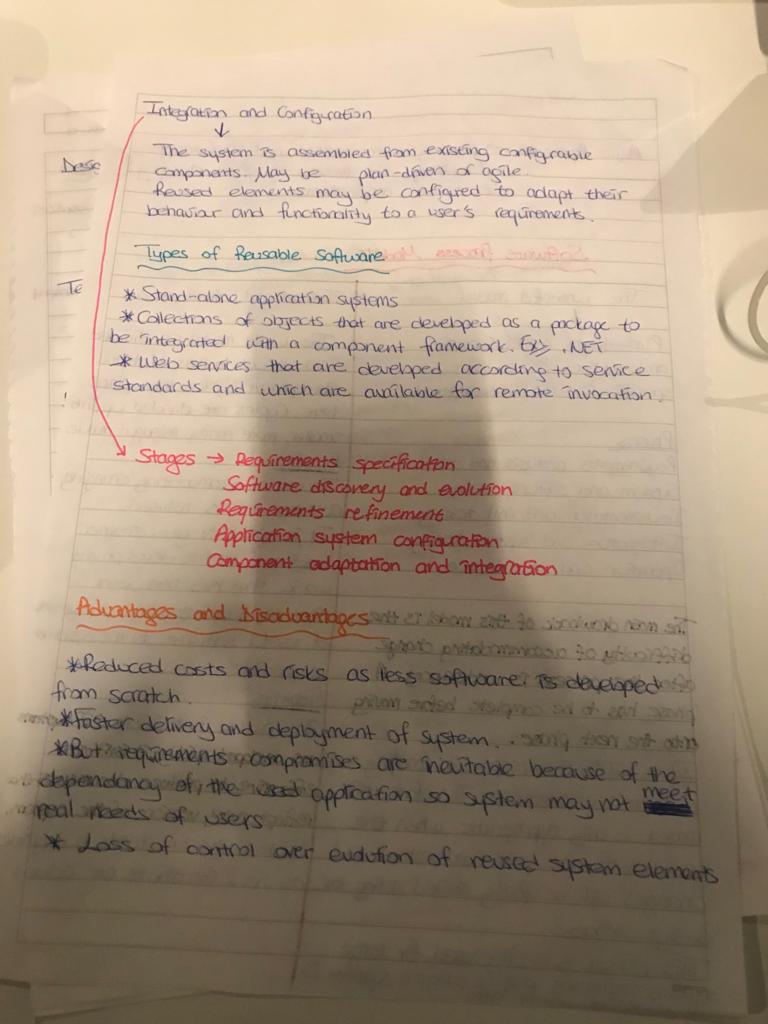 Integration and Configuration
↓
The system is assembled from existing configurable
components. May be plan-driven or agile.
Reused elements may be configured to adapt their
behaviour and functionality to a user's requirements.
Types of Reusable Software
* Stand-alone application systems
* Collections of objects that are developed as a package to
be integrated with a component framework. Ex>> .NET
* Web services that are developed according to service
standards and which are available for remote invocation.
Stages → Requirements specification
Software discovery and evolution
Requirements refinement
Application system configuration
Component adaptation and integration
Advantages and Disadvantages
*Reduced costs and risks as less software is developed
from scratch.
*Faster delivery and deployment of system.
*But requirements compromises are inevitable because of the
dependancy of the used application so system may not meet
real needs of users
* Loss of control over evolution of reused system elements
Desc
Te